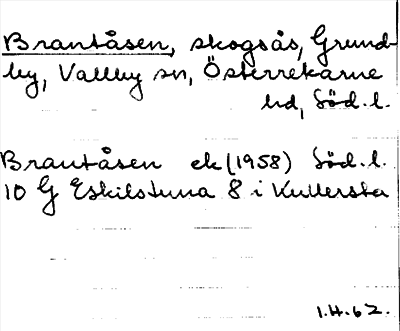 Brantåsen, skogsås, Grund-
by, Vallby sn, Österrekarne
hd, Söd. l.
Brantåsen ek (1958) Söd. l.
10 G Eskilstuna 8 i Kullersta
1.H.62.